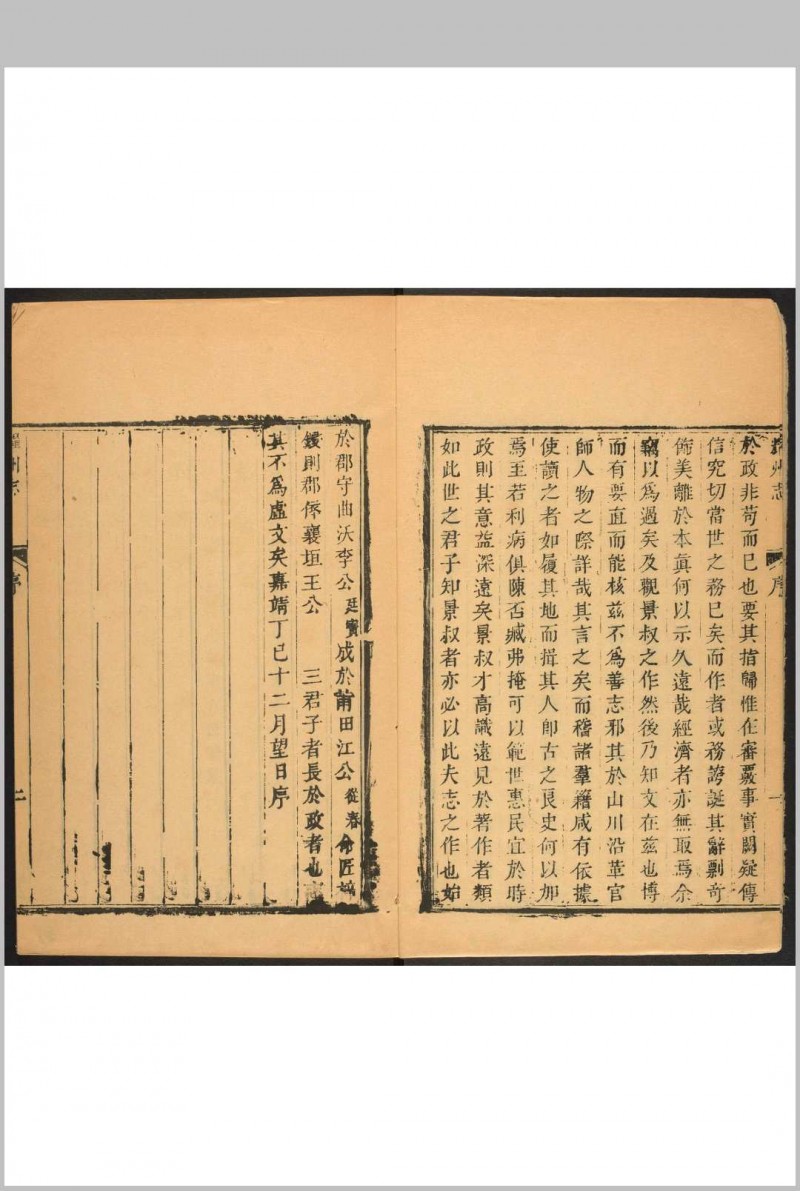 耀州志
序
一
於政非苟而已也要其指歸惟在審覈事實闕疑傳
信究切當世之務已矣而作者或務誇誕其辭剽奇
飾美離於本眞何以示久遠哉經濟者亦無取焉余
竊以爲過矣及觀景叔之作然後乃知文在茲也博
而有要直而能核茲不爲善志邪其於山川沿革官
師人物之際詳哉其言之矣而稽諸羣籍咸有依據
使讀之者如履其地而揖其人卽古之良史何以加
焉至若利病俱陳否臧弗掩可以範世惠民宜於時
政則其意益深遠矣景叔才高識遠見於著作者類
如此世之君子知景叔者亦必以此夫志之作也始
於郡守曲沃李公廷寶成於莆田江公從春命匠
鋟則郡倅襄垣王公 三君子者長於政者也
其不爲虛文矣嘉靖丁巳十二月望日序
耀州志
序
二